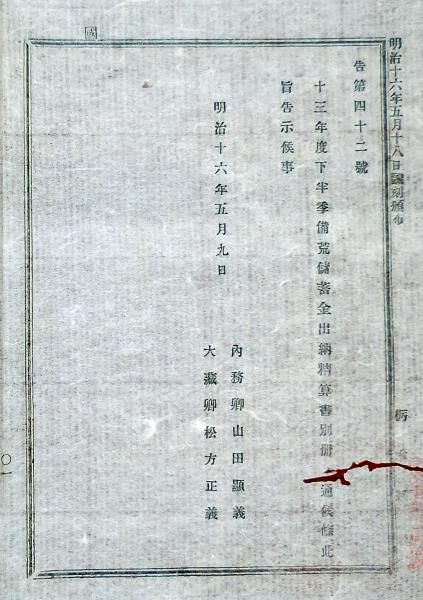 明治十六年五月十八日飜刻頒布
告第四十二號
十三年度下半季備荒儲蓄金出納精算書別冊 通候條此
旨告示候事
明治十六年五月九日
內務卿山田顯義
大藏卿松方正義
國
〇一